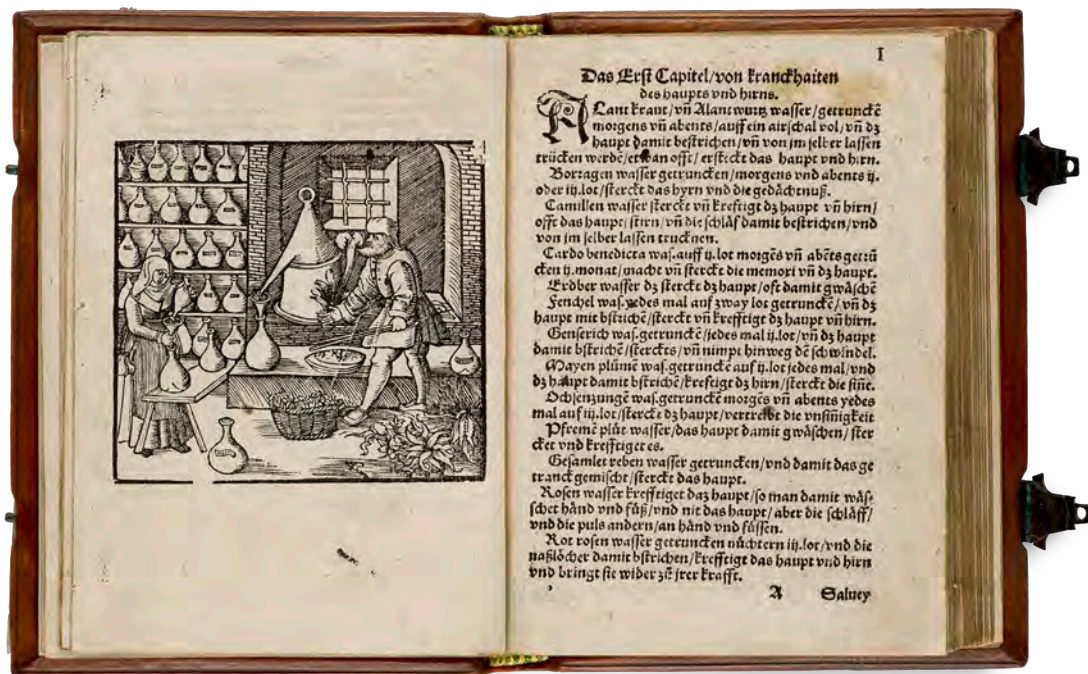 I
Das Erst Capitel/von kranckhaiten
des haupts vnd hirns.
ALant kraut/vñ Alant wurtz wasser/getrunckẽ
morgens vñ abents/auff ein airschal vol/vñ dz
haupt damit bestrichen/vñ von jm selber lassen
trücken werdẽ/etwan offt/ersteckt das haupt vnd hirn.
Borragen wasser getruncken/morgens vnd abents ij.
oder iij.lot/sterckt das hyrn vnd die gedächtnuß.
Camillen wasser sterckt vñ krefftigt dz haupt vñ hirn/
offt das haupt/stirn/vñ die schläf damit bestrichen/vnd
von jm selber lassen trucknen.
Cardo benedicta was.auff ij.lot morgẽs vñ abẽts getrũ
cken ij.monat/macht vñ sterckt die memori vñ dz haupt.
Erdber wasser dz sterckt dz haupt/oft damit gwäschẽ
Fenchel was.yedes mal auf zway lot getrunckẽ/vñ dz
haupt mit bstrichẽ/sterckt vñ krefftigt dz haupt vñ hirn.
Genserich was.getrunckẽ/jedes mal ij.lot/vñ dz haupt
damit bstrichẽ/sterckts/vñ nimpt hinweg dẽ schwindel.
Mayen plümẽ was.getrunckẽ auf ij.lot jedes mal/vnd
dz haupt damit bstrichẽ/krefftigt dz hirn/sterckt die siñẽ.
Ochsenzungẽ was.getrunckẽ morgẽs vñ abents yedes
mal auf iij.lot/sterckt dz haupt/vertreibt die vnsiñigkeit
Pfremẽ plüt wasser/das haupt damit gwäschen/ster
cket vnd krefftiget es.
Gesamlet reben wasser getruncken/vnd damit das ge
tranck gemischt/sterckt das haupt.
Rosen wasser krefftiget daz haupt/so man damit wäs⸗
schet händ vnd füß/vnd nit das haupt/aber die schläff/
vnd die puls andern/an händ vnd füssen.
Rot rosen wasser getruncken nüchtern iij.lot/vnd die
naßlöcher damit bstrichen/krefftigt das haupt vnd hirn
vnd bringt sie wider zů jrer krafft.
A Saluey